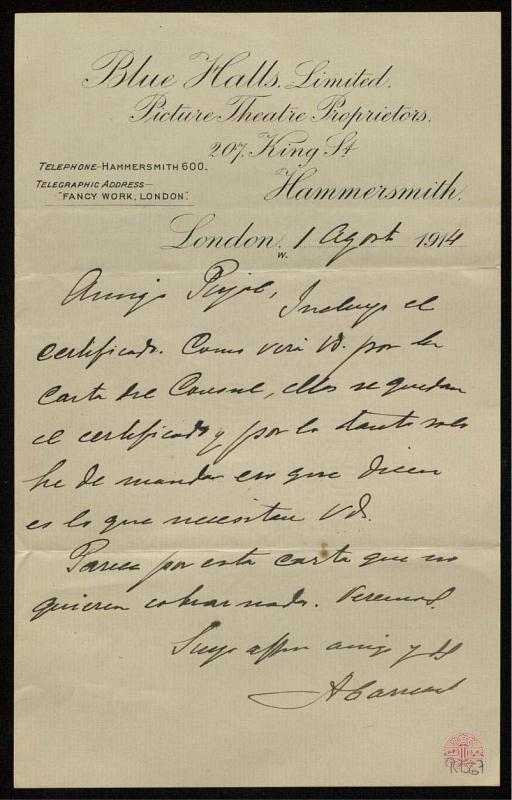 Blue Halls, Limited.
Picture Theatre Proprietors.
207, King St
TELEPHONE—HAMMERSMITH 600.
TELEGRAPHIC ADDRESS—
"FANCY WORK, LONDON".
Hammersmith,
London, W. 1 Agost 1914
Amigo Pujol, Incluyo el
certificado. Como verá Vd. por la
carta del Consul, ellos se quedan
el certificado y por lo tanto solo
he de mandar eso que dicen
es lo que necesitan Vd.
Parece por esta carta que no
quieren cobrar nada. Veremos.
Suyo affmo amigo y SS